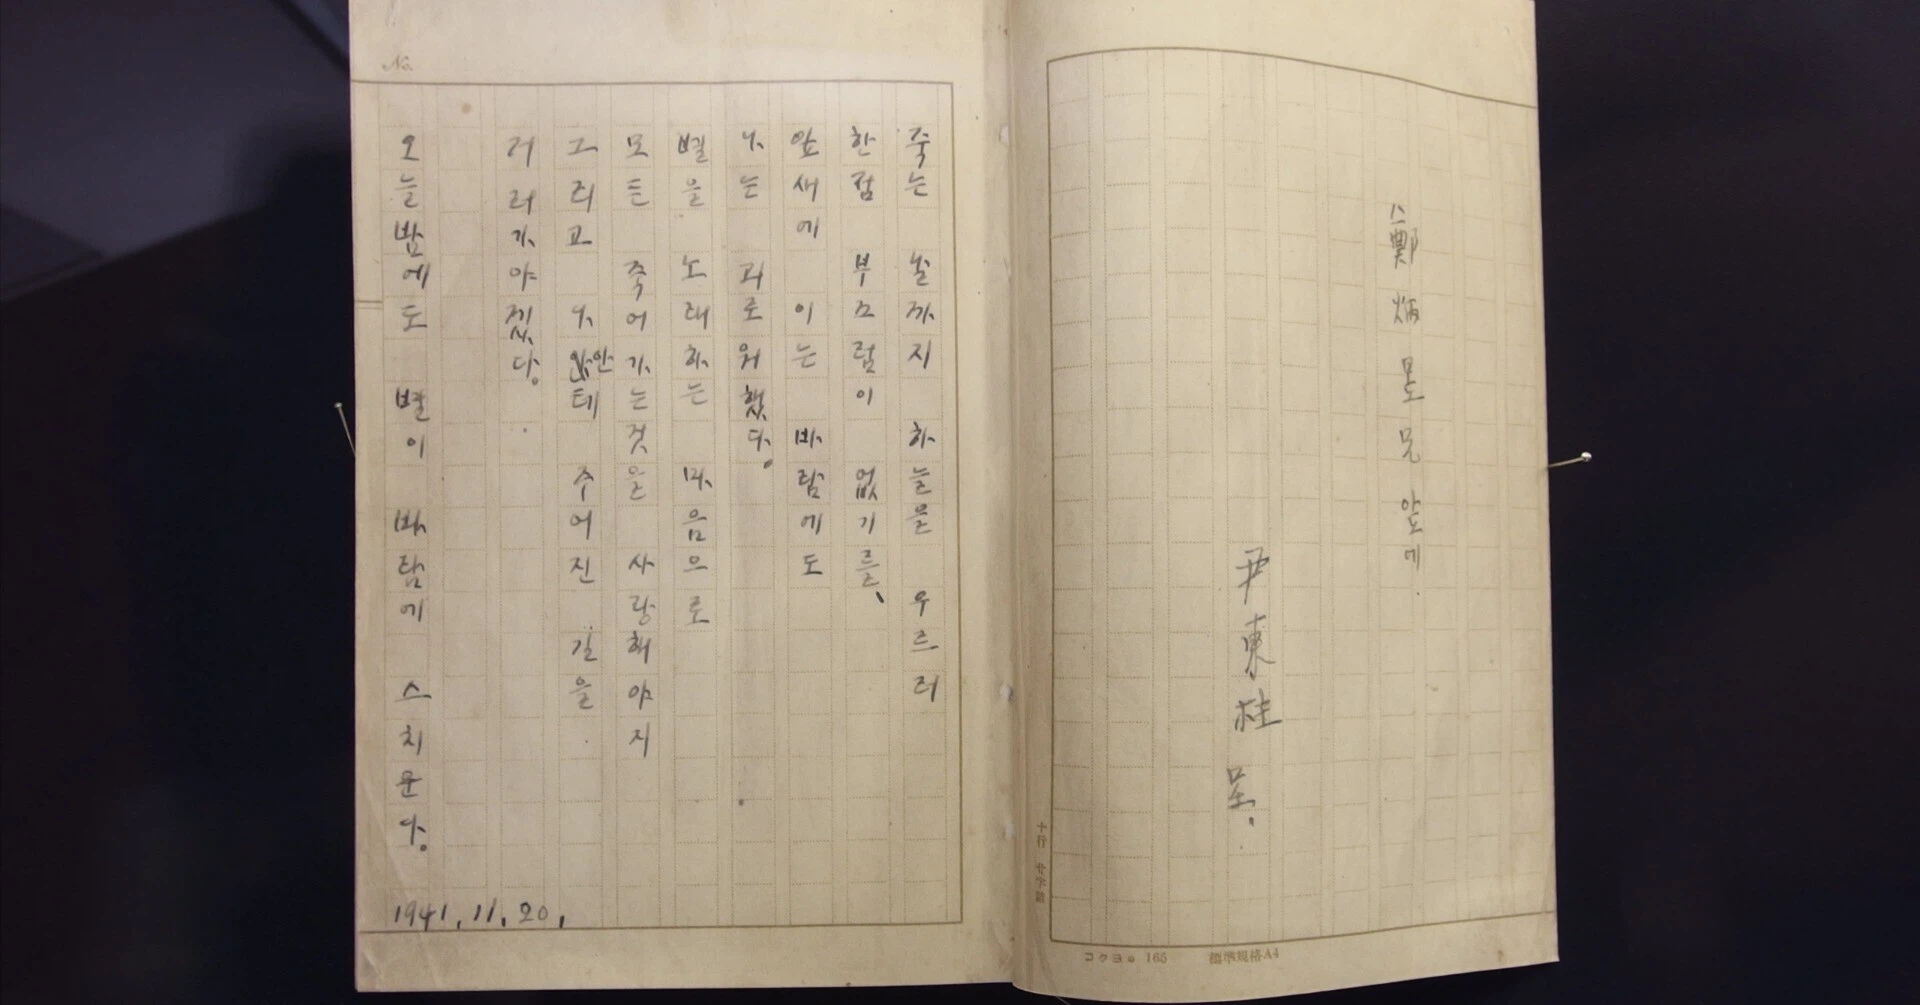 鄭炳昱兄앞에
尹東柱 呈.
十行 廿字詰
標準規格A4
No.
죽는 날까지 하늘을 우르러
한점 부끄럼이 없기를、
잎새에 이는 바람에도
나는 괴로워했다.
별을 노래하는 마음으로
모든 죽어가는것을 사랑해야지
그리고 나안테 주어진 길을
거러가야겠다.
오늘밤에도 별이 바람에 스치운다.
1941. 11. 20.